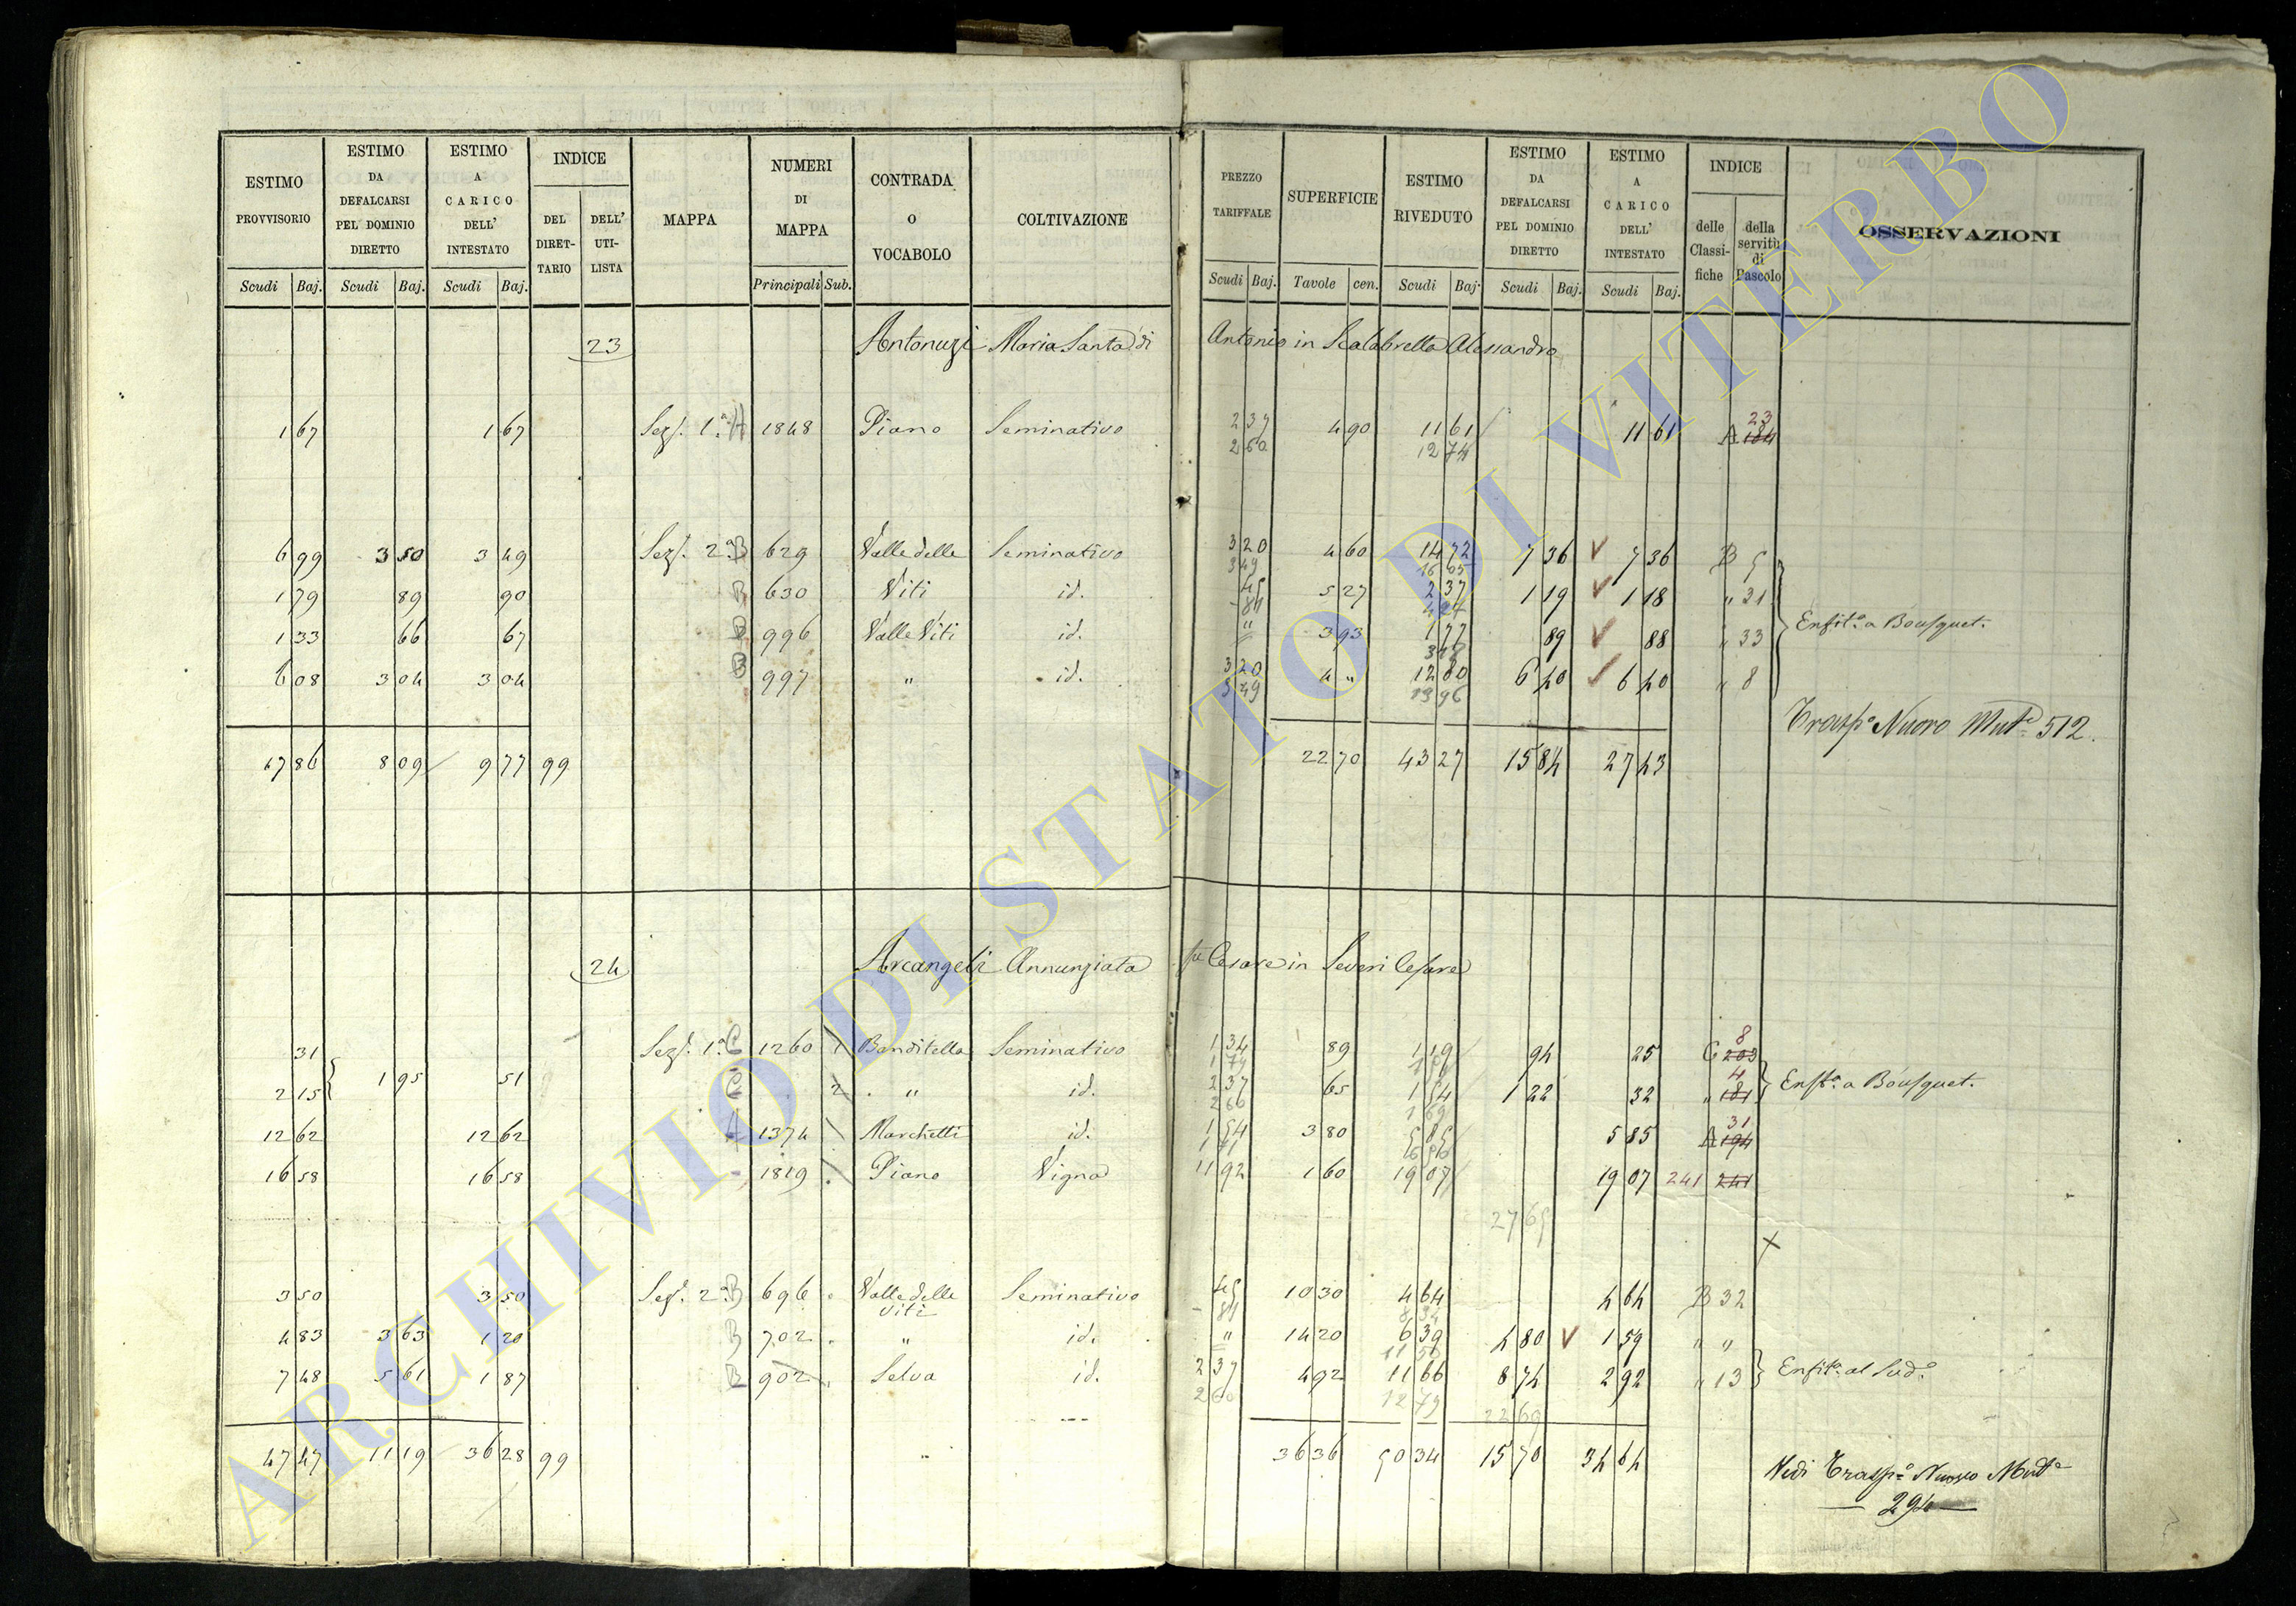 ESTIMO PROVVISORIO Scudi Baj.
ESTIMO DA DEFALCARSI PEL DOMINIO DIRETTO Scudi Baj.
ESTIMO A CARICO DELL' INTESTATO Scudi Baj.
INDICE DEL DIRET- TARIO DELL' UTI- LISTA
MAPPA
NUMERI DI MAPPA Principali Sub.
CONTRADA O VOCABOLO
COLTIVAZIONE
PREZZO TARIFFALE Scudi Baj.
SUPERFICIE Tavole cen.
ESTIMO RIVEDUTO Scudi Baj.
ESTIMO DA DEFALCARSI PEL DOMINIO DIRETTO Scudi Baj.
ESTIMO A CARICO DELL' INTESTATO Scudi Baj.
INDICE delle Classi- fiche della servitù di Pascolo
OSSERVAZIONI
23 Antonuzi Maria Santa di Antonio in Scalabrella Alessandro
1 67 1 67 Sez. 1ª A 1848 Piano Seminativo 2 37 4 90 11 61 11 61 A 184 23
2 60 12 74
6 99 3 50 3 49 Sez. 2ª B 629 Valle delle Seminativo 3 20 4 60 14 72 7 36 7 36 B 5
3 49 16 05
1 79 89 90 B 630 Viti id. 45 5 27 2 37 1 19 1 18 " 31
Enfit.ª a Bousquet.
1 33 66 67 B 996 Valle Viti id. " 3 93 1 77 89 88 " 33
6 08 3 04 3 04 B 997 " id. 3 20 4 " 12 80 6 40 6 40 " 8
3 49 13 96
Trasp.º Nuovo Mut.e 512.
17 86 8 09 9 77 99 22 70 43 27 15 84 27 43
24 Arcangeli Annunziata fu Cesare in Severi Cesare
31 Sez. 1ª C 1260 1 Banditella Seminativo 1 34 89 1 19 94 25 C 203 8
1 95 51
2 15 C 2 " id. 2 37 65 1 54 1 22 32 " 181 4
Enft.ª a Bousquet.
2 60 1 69
12 62 12 62 A 1374 Marchetti id. 1 54 3 80 5 85 5 85 A 194 31
16 58 16 58 1819 Piano Vigna 11 92 1 60 19 07 19 07 241 241
27 65
3 50 3 50 Sez. 2ª B 696 Valle delle Viti Seminativo 45 10 30 4 64 4 64 B 32
4 83 3 63 1 20 B 702 " id. " 14 20 6 39 4 80 1 59 " "
7 48 5 61 1 87 B 902 Selva id. 2 37 4 92 11 66 8 74 2 92 " 13
Enfit.ª al Sud.º
2 60 12 79
22 69
47 47 11 19 36 28 99 36 36 50 34 15 70 34 64
Vedi Trasp.º Nuovo Mut.e
294
ARCHIVIO DI STATO DI VITERBO